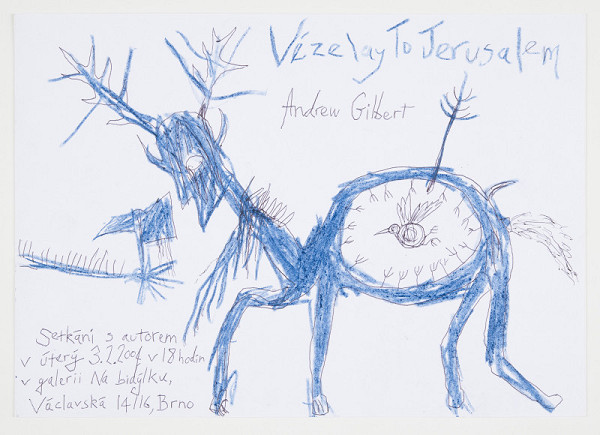 Vézelay To Jerusalem
Andrew Gilbert
Setkání s autorem
v úterý v 18 hodin
v galerii Na bidýlku,
Václavská 14/16, Brno